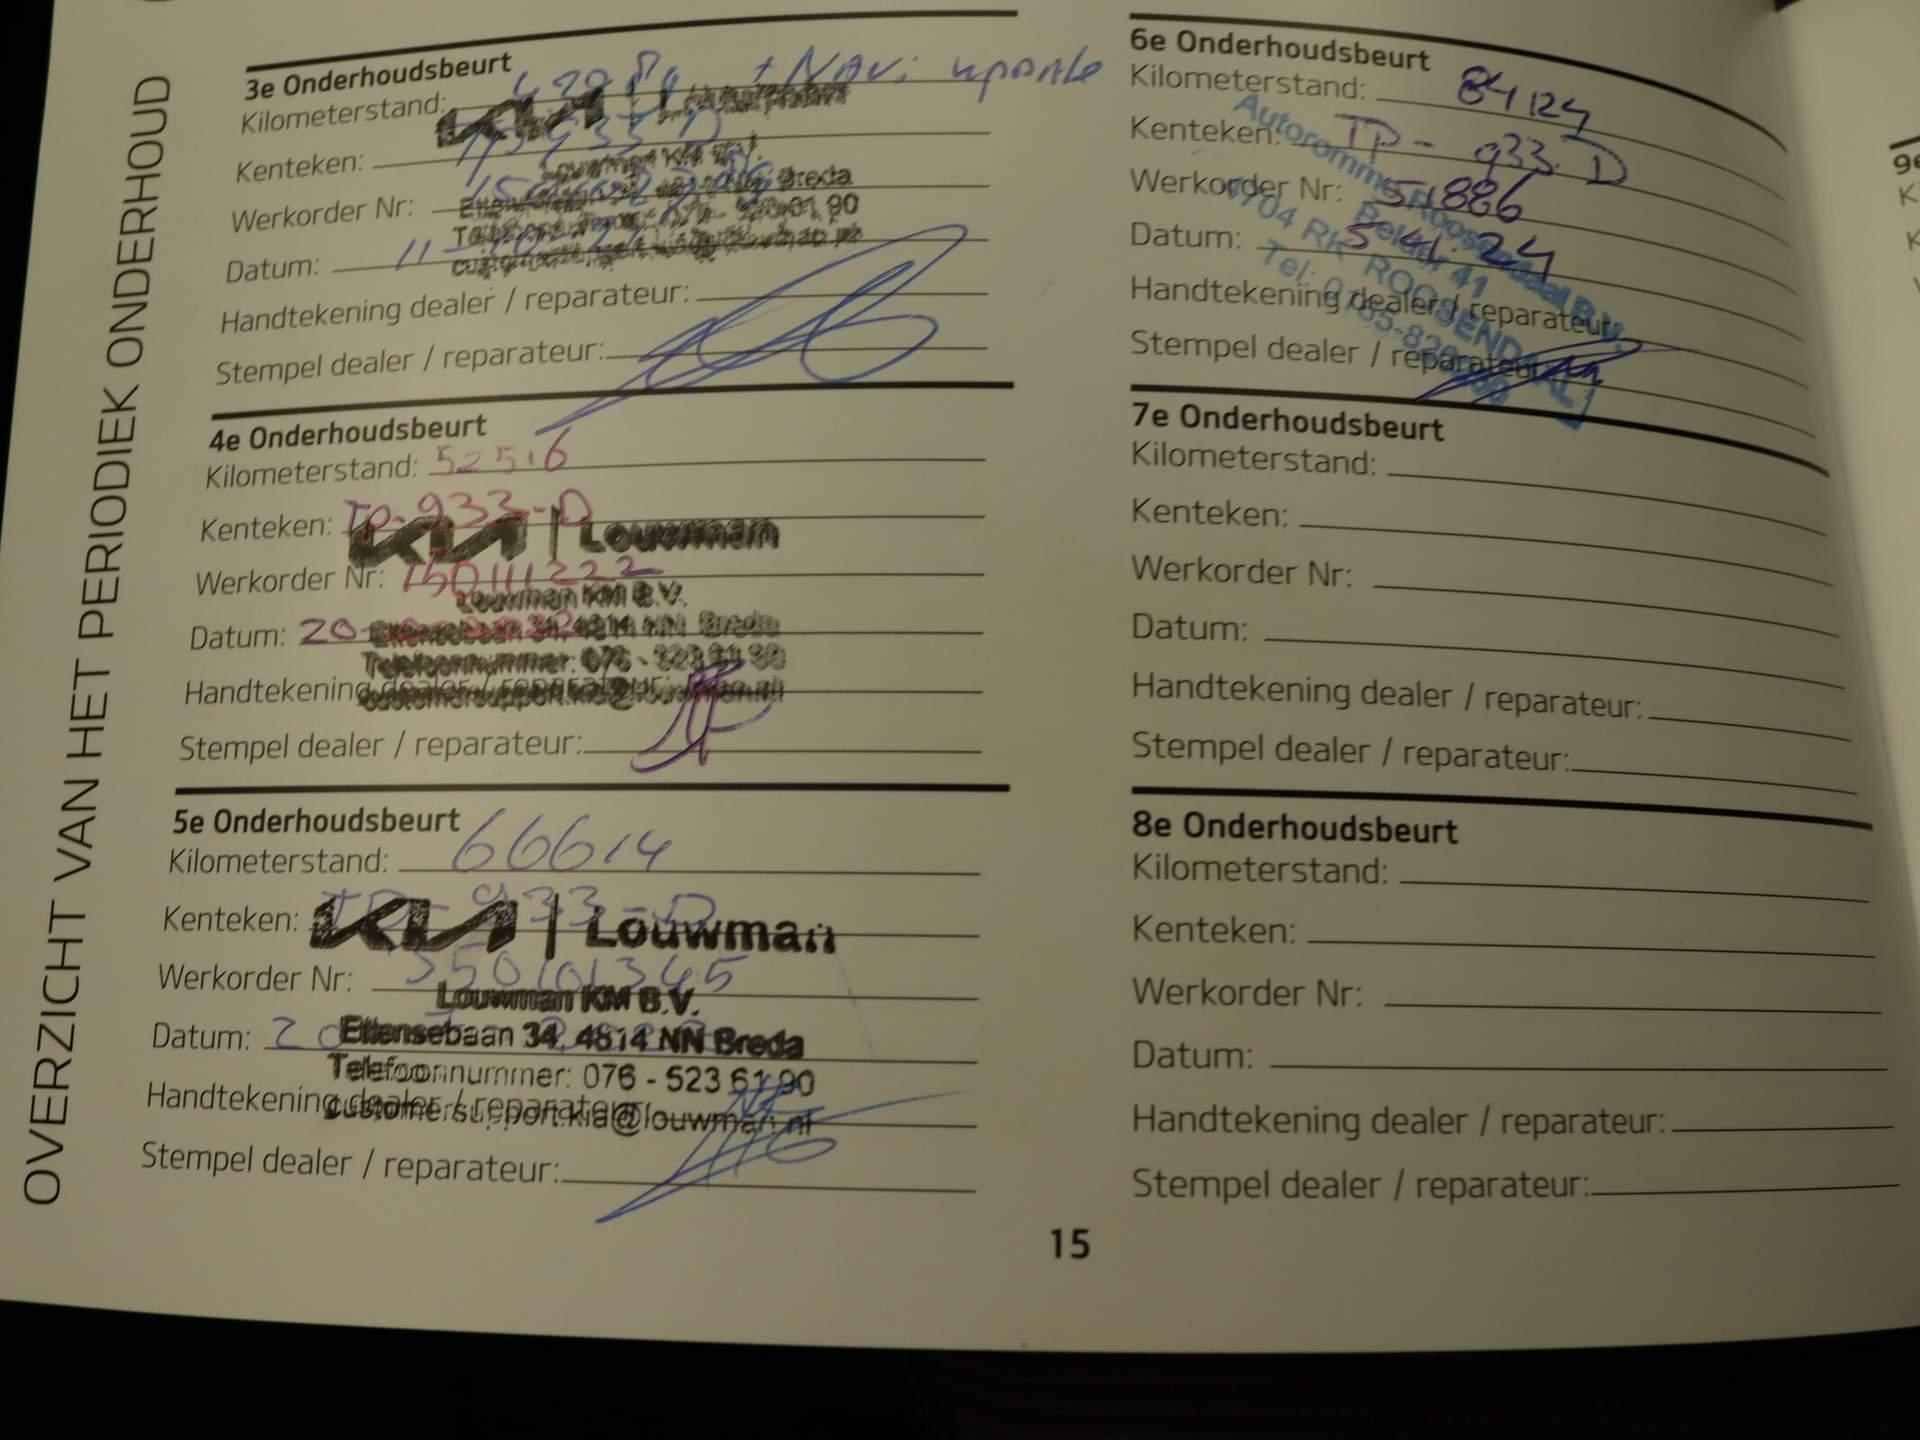 OVERZICHT VAN HET PERIODIEK ONDERHOUD
3e Onderhoudsbeurt
+ Nav: update
Kilometerstand:
KIA
Kenteken:
Werkorder Nr:
Breda
Datum: 11
Handtekening dealer / reparateur:
Stempel dealer / reparateur:
4e Onderhoudsbeurt
Kilometerstand: 52516
Kenteken: TP-933-D
KIA | Louwman
Werkorder Nr: 150111222
Louwman KM B.V.
Datum: 20
Ettensebaan 34, 4814 NN Breda
Telefoonnummer: 076 - 523 61 90
Handtekening dealer / reparateur:
customersupport.kia@louwman.nl
Stempel dealer / reparateur:
5e Onderhoudsbeurt
Kilometerstand: 66614
Kenteken: TP-933-D
KIA | Louwman
Werkorder Nr:
Louwman KM B.V.
Datum: 20
Ettensebaan 34, 4814 NN Breda
Telefoonnummer: 076 - 523 61 90
Handtekening dealer / reparateur:
customersupport.kia@louwman.nl
Stempel dealer / reparateur:
6e Onderhoudsbeurt
Kilometerstand: 84124
Kenteken: TP-933-D
Werkorder Nr: 51886
Datum: 24
Handtekening dealer / reparateur:
Stempel dealer / reparateur:
Roosendaal B.V.
41
4704 RK ROOSENDAAL
Tel: 0165-
7e Onderhoudsbeurt
Kilometerstand:
Kenteken:
Werkorder Nr:
Datum:
Handtekening dealer / reparateur:
Stempel dealer / reparateur:
8e Onderhoudsbeurt
Kilometerstand:
Kenteken:
Werkorder Nr:
Datum:
Handtekening dealer / reparateur:
Stempel dealer / reparateur:
15
9e